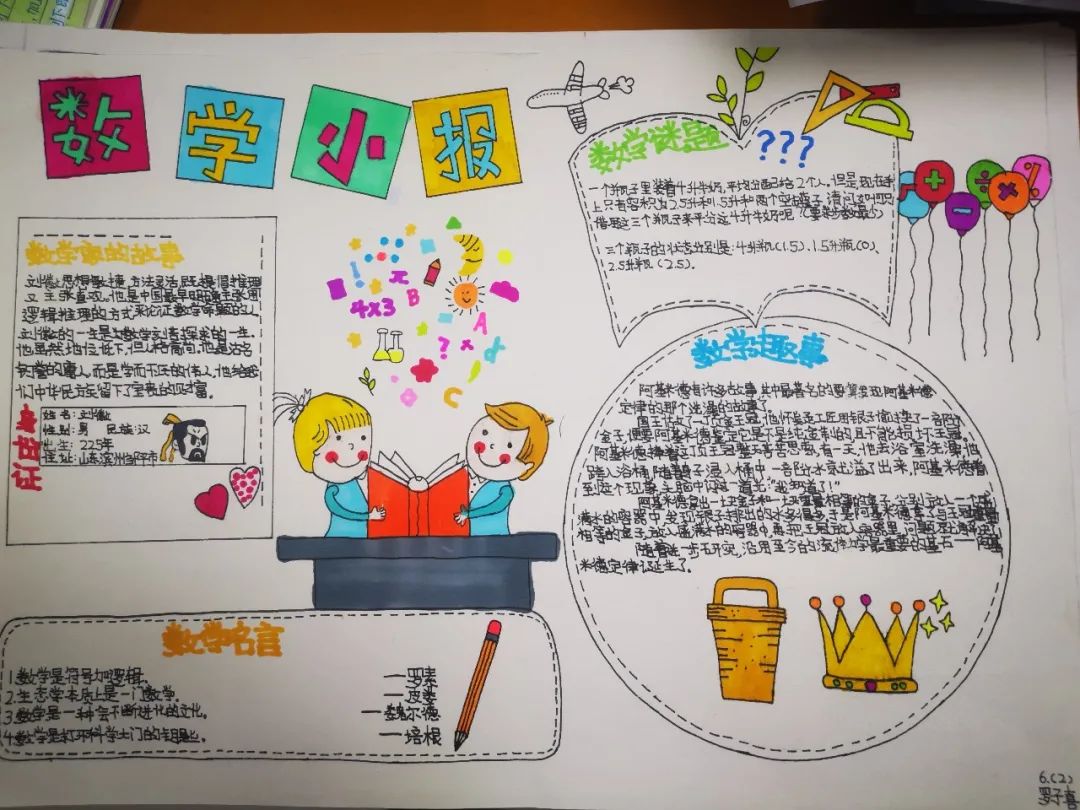 数学小报
数学家名人小知识
刘徽思想敏捷,方法灵活,既提倡推理
又主张直观。他是中国最早明确主张用
逻辑推理的方式来论证数学命题的人
刘徽的一生是为数学刻苦探求的一生
他虽然地位低下,但人格高尚,他是沽名
钓誉的庸人,而是学而不厌的伟人,他给我
们中华民族留下了宝贵的财富。
身份证
姓名:刘徽
性别:男 民族:汉
出生:225年
住址:山东滨州邹平市
4×3
B
A
?
数学名言
1.数学是符号加逻辑。 —罗素
2.生态学本质上是一门数学。 —皮娄
3.数学是一种会不断进化的文化。 —魏尔德
4.数学是打开科学大门的钥匙。 —培根
数学谜题
???
一个瓶子里装着4升牛奶,平均分配给2个人。但是现在手
上只有容积为2.5升和1.5升和两个空瓶子,请问如何只
借用这三个瓶子来平分这4升牛奶呢
三个瓶子的状态分别是:4升瓶(1.5)、1.5升瓶(0)、
2.5升瓶(2.5)。
+
-
÷
×
%
数学趣事
阿基米德有许多故事,其中最著名的要算发现阿基米德
定律的那个洗澡的故事了。
国王做了一顶金王冠,他怀疑工匠用银子偷换了一部分
金子,便要阿基米德鉴定它是不是纯金制的,且不能损坏王冠。
阿基米德捧着这顶王冠整天苦苦思索,有一天,他去浴室洗澡,他
跨入浴桶,随着身子浸入桶中,一部分水就溢了出来,阿基米德看
到这个现象,头脑中闪过一道光“我知道了!”
阿基米德拿出一块金子和一块重量相等的金子,分别放入一个盛
满水的容器中,发现银子排出的水多得多,于是阿基米德拿了与王冠重量
相等的金子,放入盛满水的容器中,再把王冠放入
随着进一步研究,沿用至今的流体力学最重要的基石——阿基
米德定律诞生了。
6.(2)
罗子